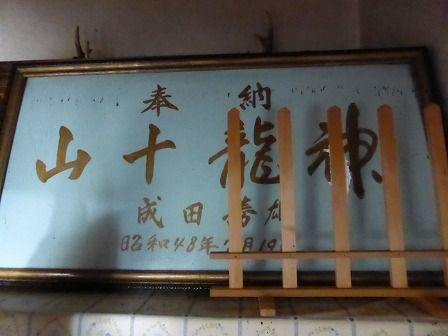 奉納
山十龍神
成田 雄
昭和48年 月19